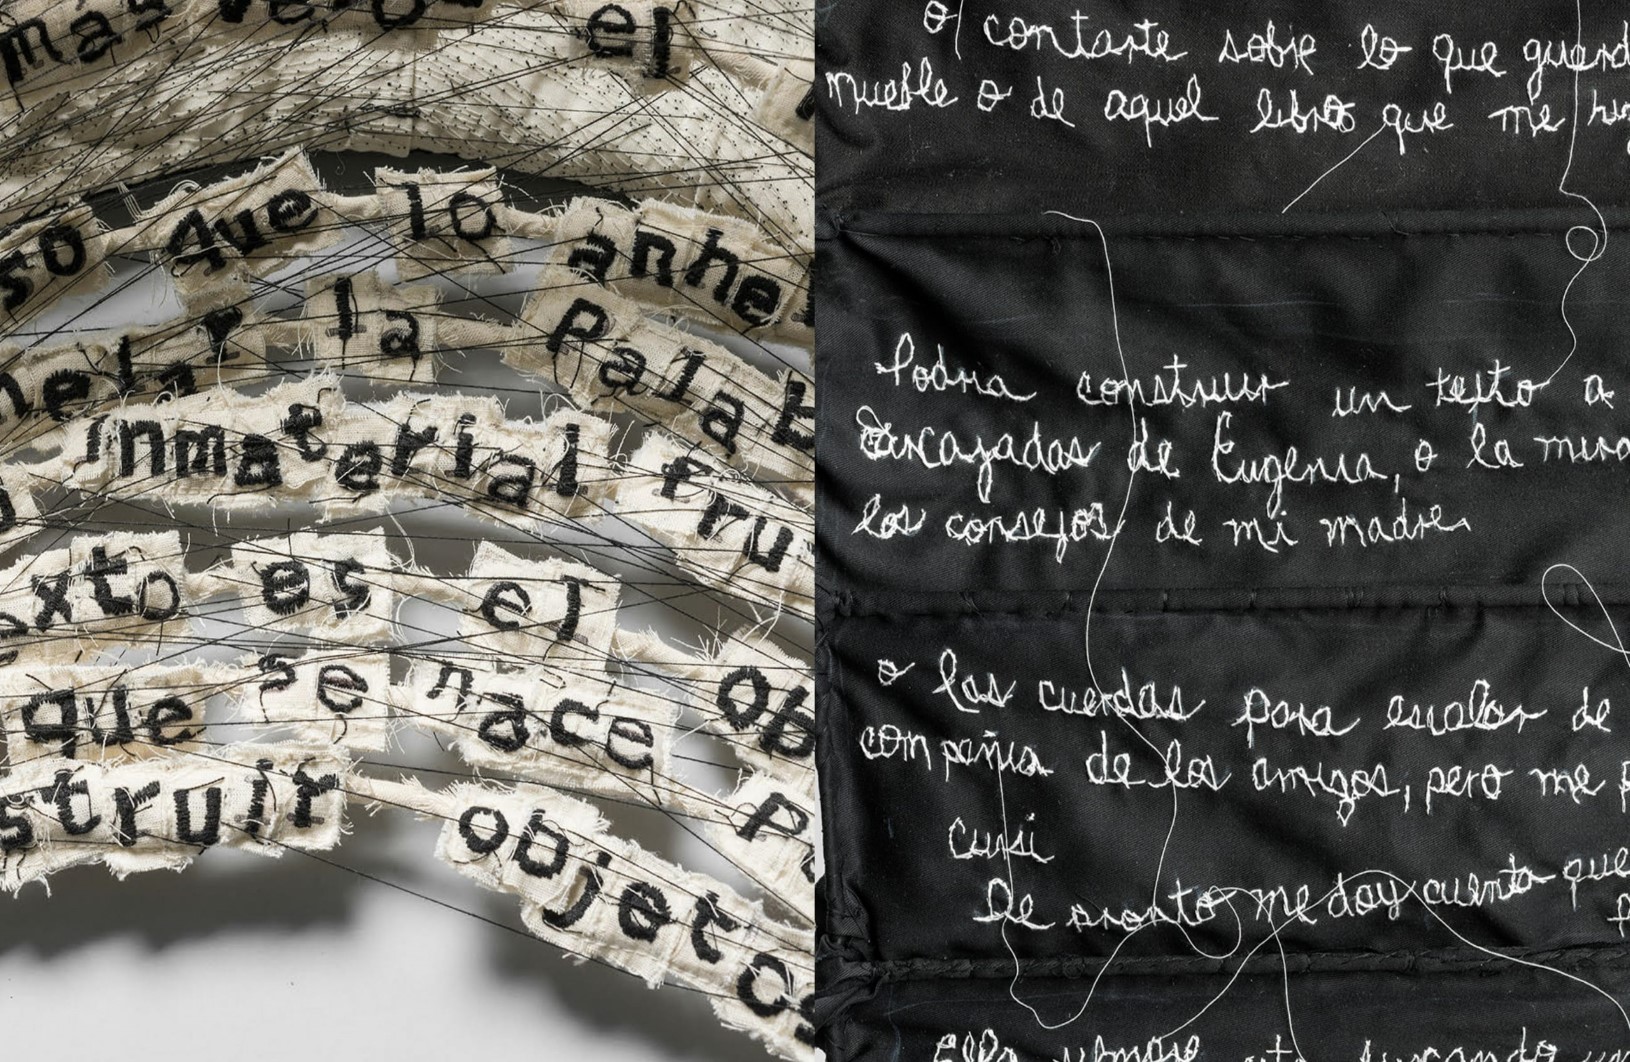 el
so que lo anhel
la Palab
inmaterial fru
exto es el ob
que se nace
struir objetos
o contarte sobre lo que guard
mueble o de aquel libro que me
Podria construir un texto a
Carcajadas de Eugenia, o la mira
los consejos de mi madre.
o las cuerdas para escalar de
compañia de los amigos, pero me p
Cursi
De pronto me doy cuenta que